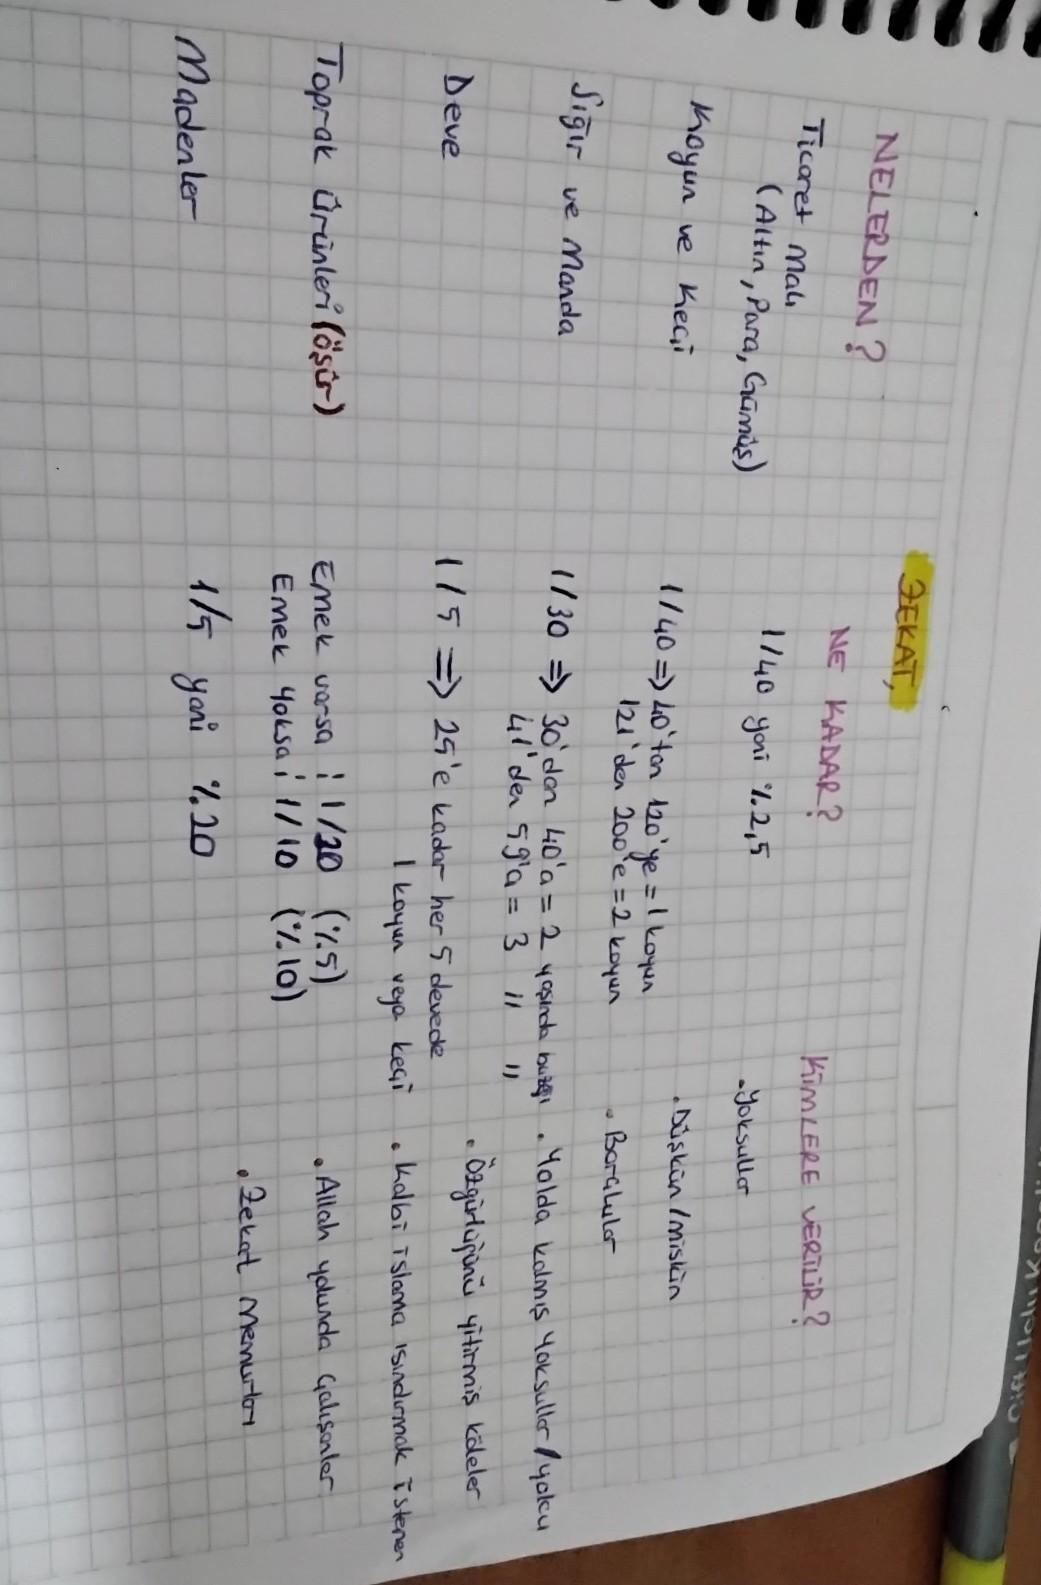 ZEKAT,
NELERDEN?
NE KADAR?
KİMLERE VERİLİR?
Ticaret Malı
(Altın, Para, Gümüş)
1/40 yani %2,5
• Yoksullar
Koyun ve Keçi
1/40 => 40'tan 120'ye = 1 koyun
121'den 200'e = 2 koyun
• Düşkün/miskin
• Borçlular
Sığır ve Manda
1/30 => 30'dan 40'a = 2 yaşında buzağı
41'den 59'a = 3 " "
• Yolda kalmış yoksullar/yolcu
• Özgürlüğünü yitirmiş köleler
Deve
1/5 => 25'e kadar her 5 devede
1 koyun veya keçi
• Kalbi İslama ısındırmak istenen
Toprak Ürünleri (öşür)
Emek varsa : 1/20 (%5)
Emek yoksa : 1/10 (%10)
• Allah yolunda çalışanlar
Madenler
1/5 yani %20
• Zekat memurları